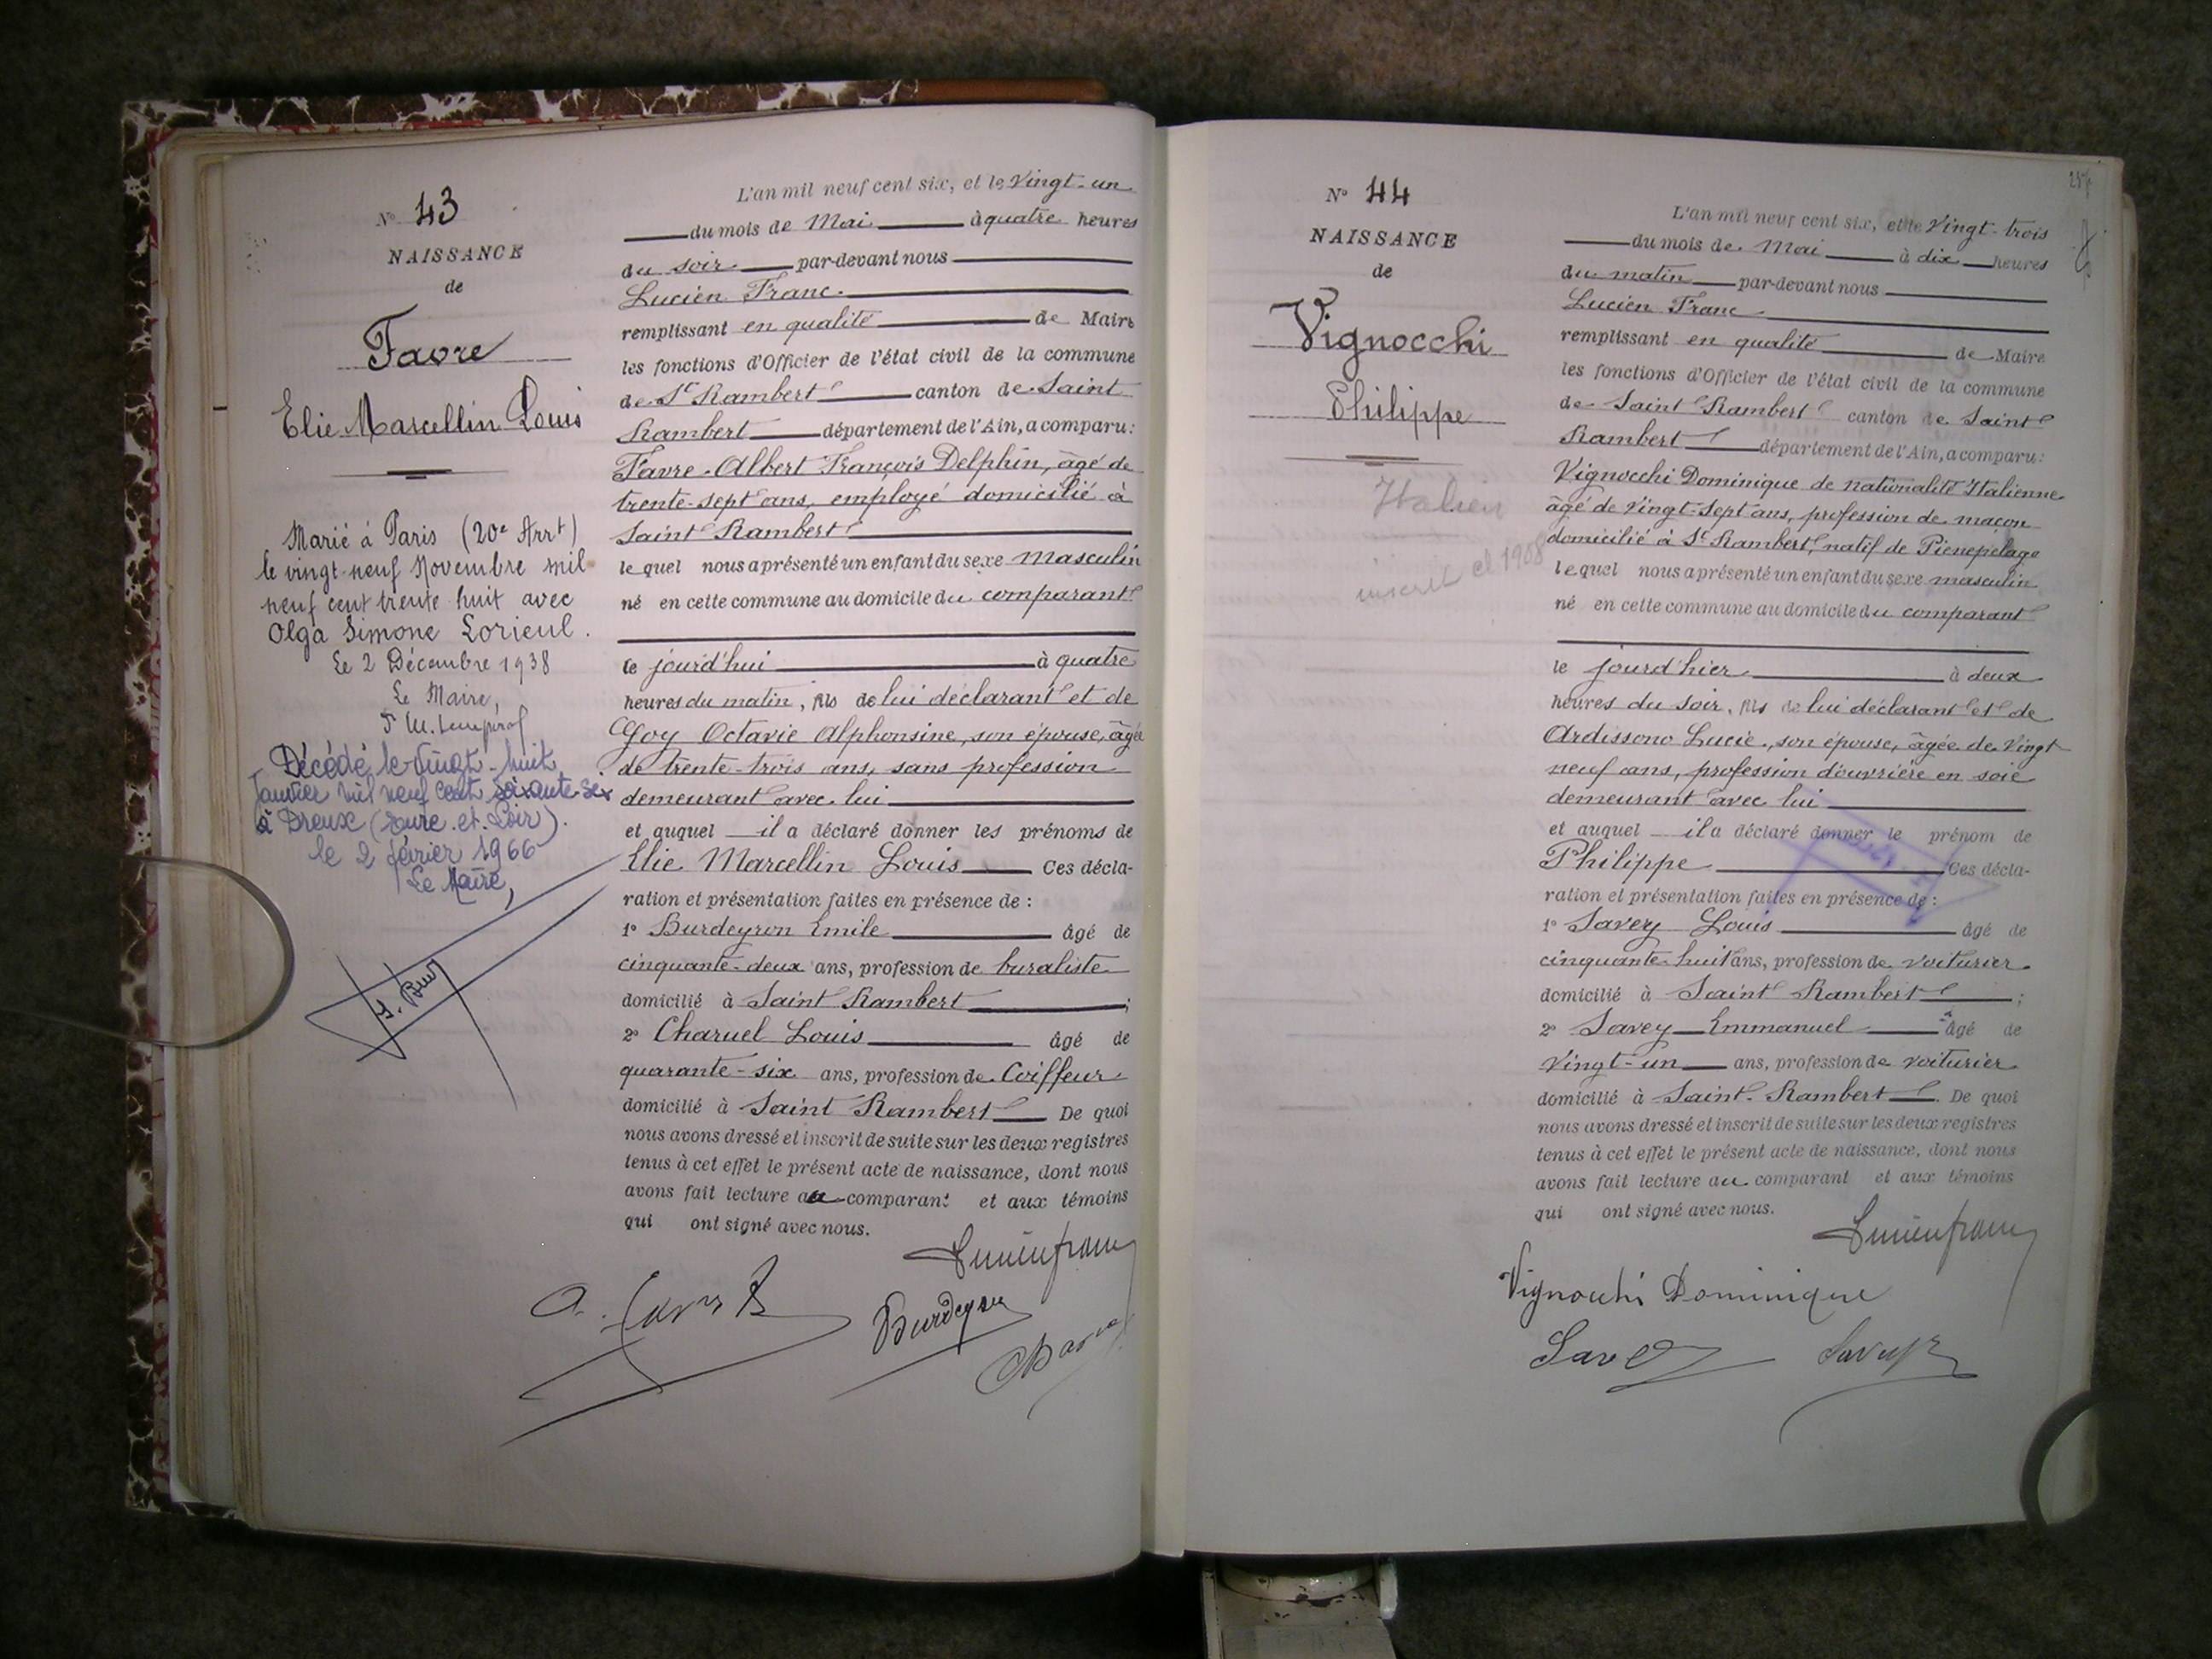 N° 43
NAISSANCE
de
Favre
Elie Marcellin Louis
Marié à Paris (20e Arrt)
le vingt-neuf Novembre mil
neuf cent trente huit avec
Olga Simone Lorieul.
Le 2 Décembre 1938
Le Maire,
Décédé le Vingt-huit
Janvier mil neuf cent soixante-six
à Dreux (Eure-et-Loir).
le 2 février 1966
Le Maire,
L'an mil neuf cent six, et le Vingt-un
du mois de Mai à quatre heures
du soir par-devant nous
Lucien Franc.
remplissant en qualité de Maire
les fonctions d'Officier de l'état civil de la commune
de St Rambert canton de Saint
Rambert département de l'Ain, a comparu:
Favre Albert François Delphin, âgé de
trente-sept ans, employé domicilié à
Saint Rambert
lequel nous a présenté un enfant du sexe masculin
né en cette commune au domicile du comparant
le jourd'hui à quatre
heures du matin, fils de lui déclarant et de
Goy Octavie Alphonsine, son épouse, âgée
de trente-trois ans, sans profession
demeurant avec lui
et auquel il a déclaré donner les prénoms de
Elie Marcellin Louis Ces décla-
ration et présentation faites en présence de :
1° Burdeyron Emile âgé de
cinquante-deux ans, profession de buraliste
domicilié à Saint Rambert ;
2° Charuel Louis âgé de
quarante-six ans, profession de Coiffeur
domicilié à Saint Rambert De quoi
nous avons dressé et inscrit de suite sur les deux registres
tenus à cet effet le présent acte de naissance, dont nous
avons fait lecture au comparant et aux témoins
qui ont signé avec nous.
Lucien franc
Burdeyron
N° 44
NAISSANCE
de
Vignocchi
Philippe
Italien
inscrit cl 1908
L'an mil neuf cent six, et le Vingt-trois
du mois de Mai à dix heures
du matin par-devant nous
Lucien Franc
remplissant en qualité de Maire
les fonctions d'Officier de l'état civil de la commune
de Saint Rambert canton de Saint
Rambert département de l'Ain, a comparu:
Vignocchi Dominique de nationalité Italienne
âgé de Vingt-Sept ans, profession de maçon
domicilié à St Rambert, natif de Pienepelage
lequel nous a présenté un enfant du sexe masculin
né en cette commune au domicile du comparant
le jourd'hier à deux
heures du soir, fils de lui déclarant et de
Ardissono Lucie, son épouse, âgée de Vingt
neuf ans, profession d'ouvrière en soie
demeurant avec lui
et auquel il a déclaré donner le prénom de
Philippe Ces décla-
ration et présentation faites en présence de :
1° Savey Louis âgé de
cinquante-huit ans, profession de voiturier
domicilié à Saint Rambert ;
2° Savey Emmanuel âgé de
Vingt-un ans, profession de voiturier
domicilié à Saint-Rambert. De quoi
nous avons dressé et inscrit de suite sur les deux registres
tenus à cet effet le présent acte de naissance, dont nous
avons fait lecture au comparant et aux témoins
qui ont signé avec nous.
Lucien franc
Vignocchi Dominique
Savey Savey